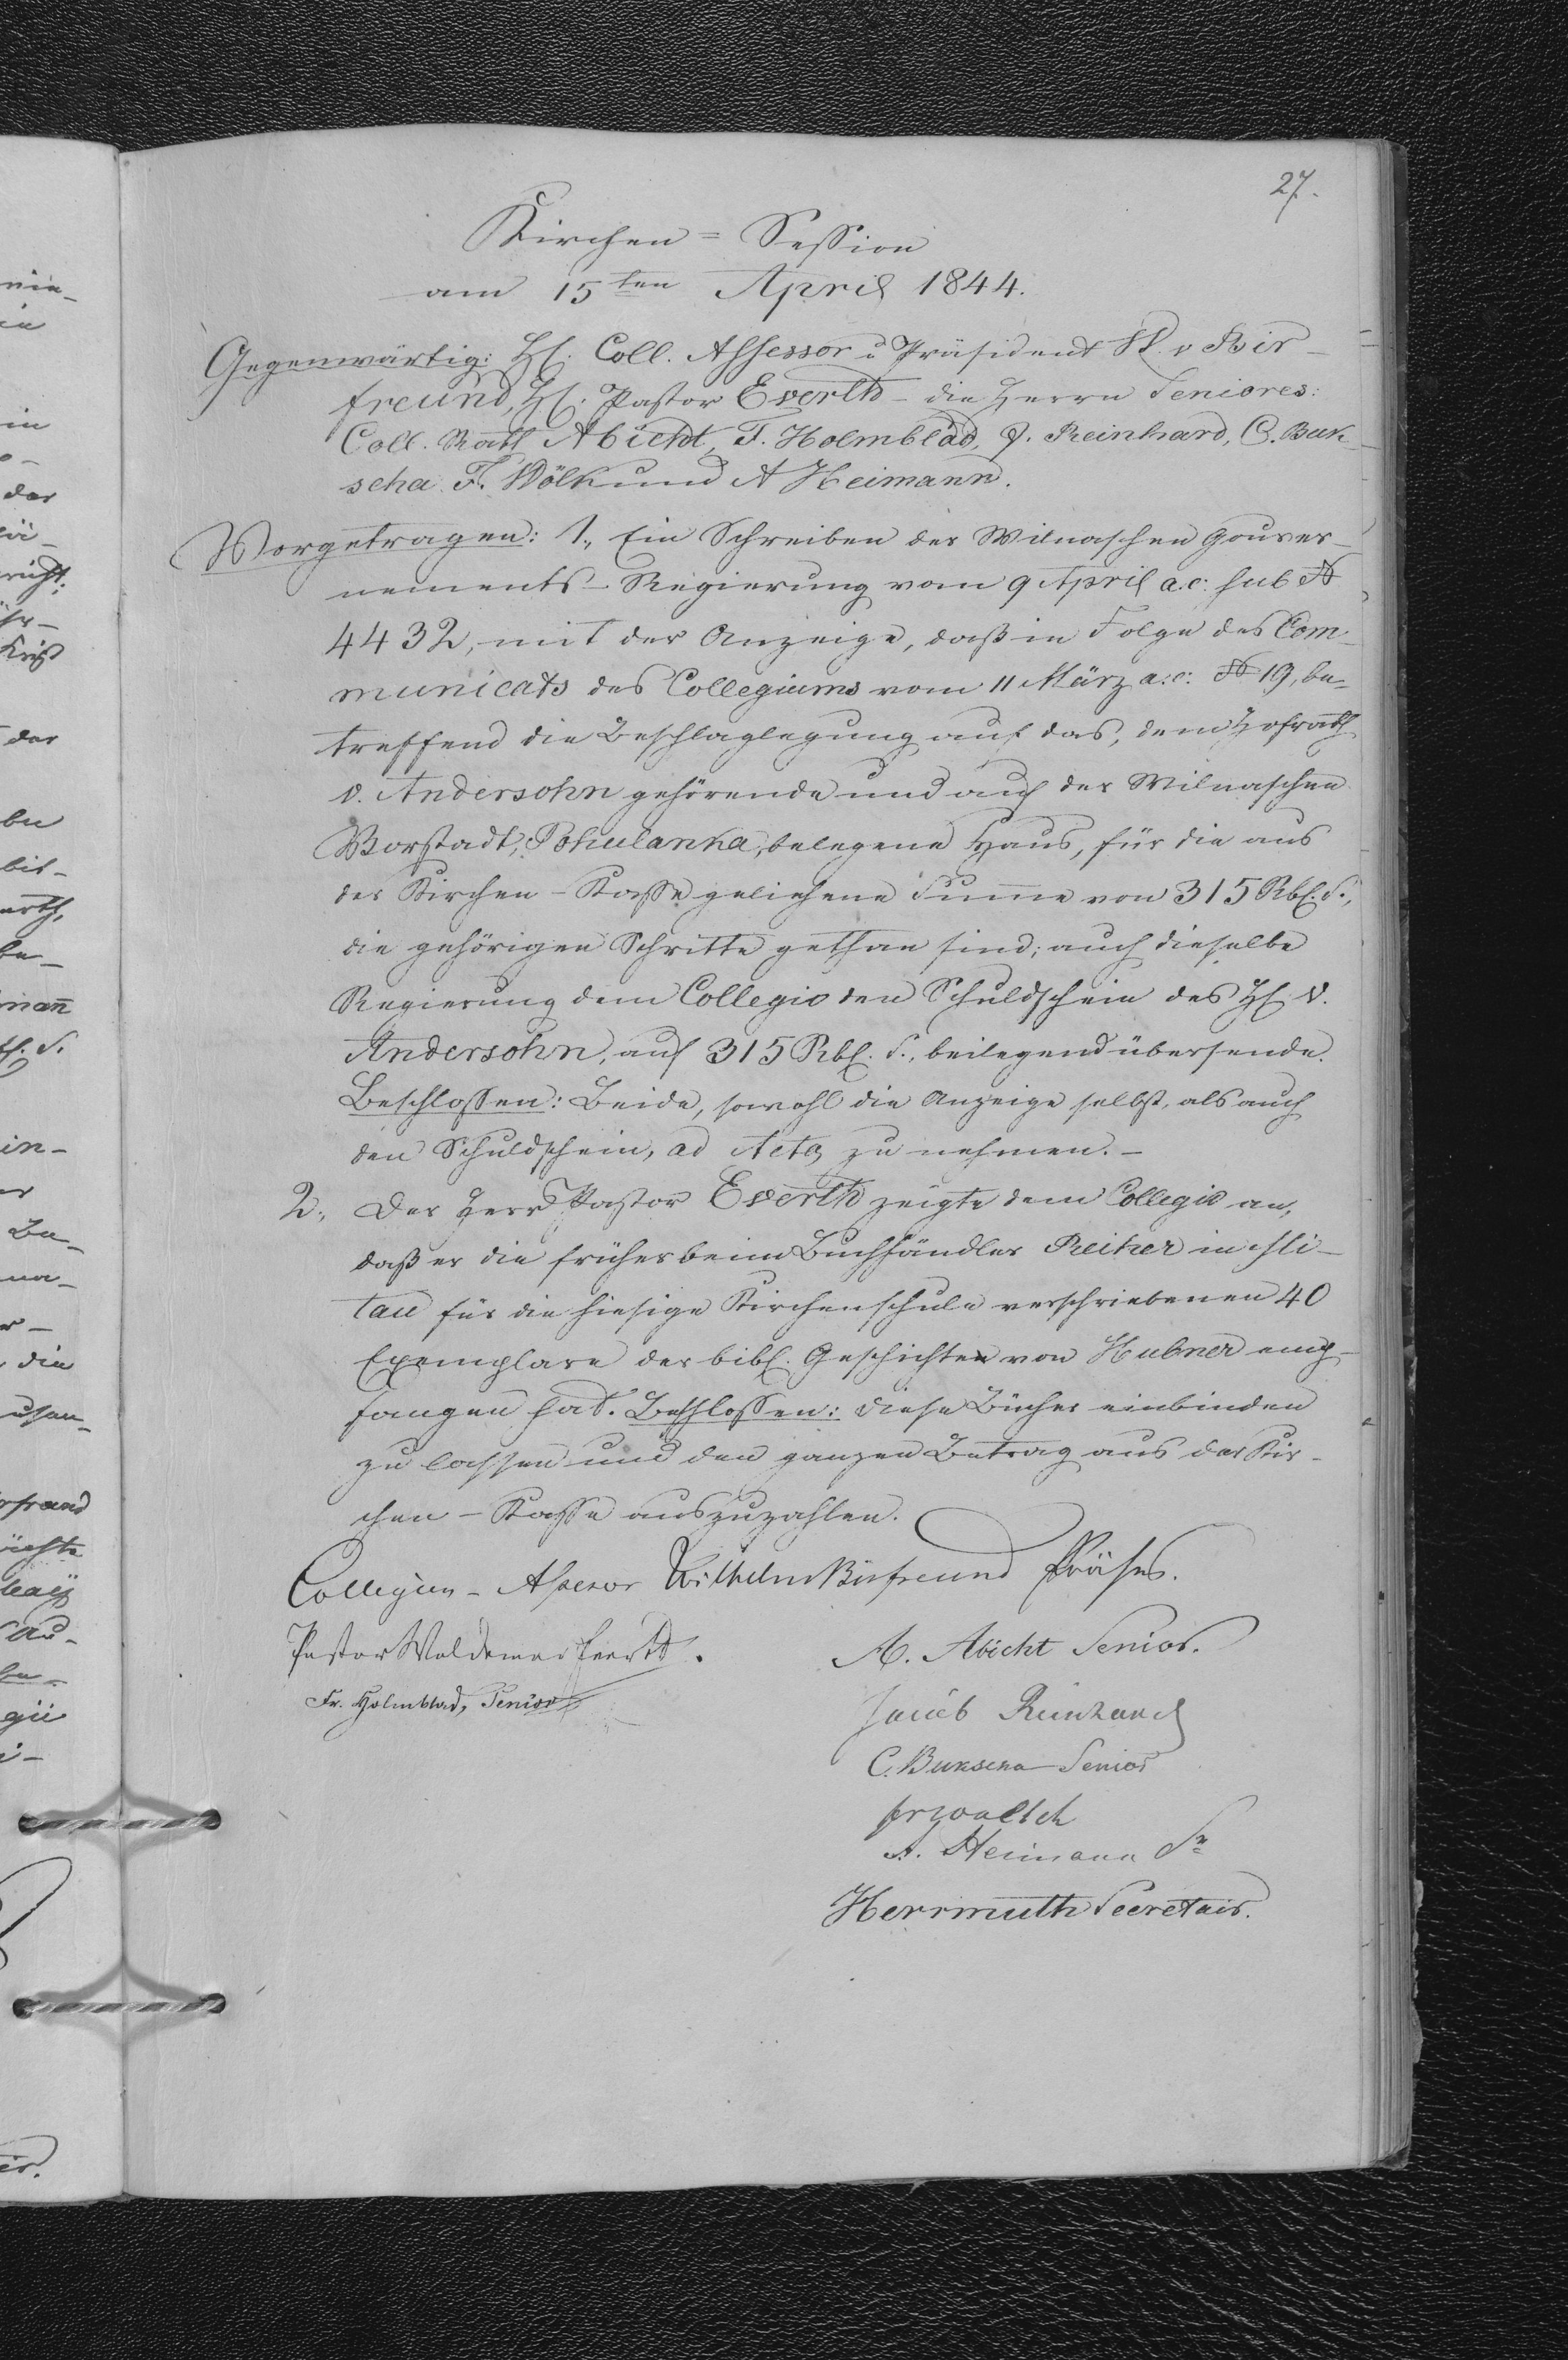 27.
Kirchen = Session
am 15ten April 1844.
Gegenwärtig: H: Coll. Assessor u Präsident W. v Bir-
freund, H: Pastor Everth - die Herrn Seniores:
Coll. Rath Abicht, F. Holmblad, J. Reinhard, C. Buk-
scha F. Wölk und A Heimann.
Vorgetragen: 1., Ein Schreiben der Wilnaschen Gouver-
nements-Regierung vom 9 April a.c: sub №
4432, mit der Anzeige, daß in Folge des Com-
municats des Collegiums vom 11 März a.c: № 19, be-
treffend die Beschlaglegung auf das, dem Hofrath
v. Andersohn gehörende und auf der Wilnaschen
Vorstadt, Pohulanka, belegene Haus, für die aus
der Kirchen-Kasse geliehene Summe von 315 Rbl. S.,
die gehörigen Schritte gethan sind; auch dieselbe
Regierung dem Collegio den Schuldschein des H: v.
Andersohn, auf 315 Rbl. S., beilegend übersende.
Beschlossen: Beide, sowohl die Anzeige selbst, als auch
den Schuldschein, ad Acta zu nehmen. -
2., Der Herr Pastor Everth zeigte dem Collegio an,
daß er die früher beim Buchhändler Reiher in Mi-
tau für die hiesige Kirchenschule verschriebenen 40
Exemplare der bibl. Geschichten von Hubner emp-
fangen hat. Beschlossen: diese Bücher einbinden
zu lassen und den ganzen Betrag aus der Kir-
chen-Kasse auszuzahlen.
Collegien-Assessor Wilhelm Birfreund Präses.
Pastor Woldemar Everth.
A. Abicht Senior.
Fr. Holmblad, Senior
Jacob Reinhard
C. Bukscha Senior
A. Heimann Sr
Herrmuth Secretair.